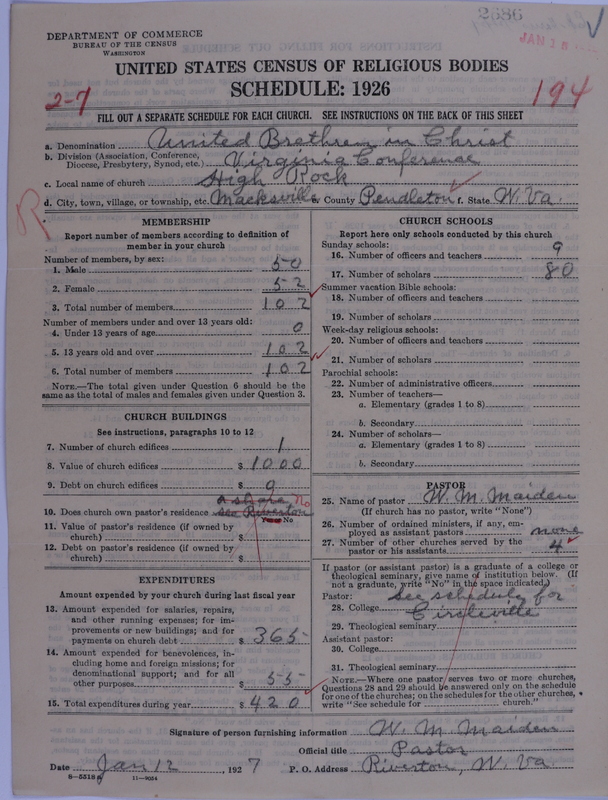 2586
JAN 18
DEPARTMENT OF COMMERCE
BUREAU OF THE CENSUS
WASHINGTON
UNITED STATES CENSUS OF RELIGIOUS BODIES
SCHEDULE: 1926
2-7
194
FILL OUT A SEPARATE SCHEDULE FOR EACH CHURCH. SEE INSTRUCTIONS ON THE BACK OF THIS SHEET
a. Denomination United Brethren in Christ
b. Division (Association, Conference, Diocese, Presbytery, Synod, etc.) Virginia Conference
c. Local name of church High Rock
d. City, town, village, or township, etc. Macksville e. County Pendleton f. State W. Va.
R
MEMBERSHIP
Report number of members according to definition of
member in your church
Number of members, by sex:
1. Male 50
2. Female 52
3. Total number of members 102
Number of members under and over 13 years old:
4. Under 13 years of age 0
5. 13 years old and over 102
6. Total number of members 102
NOTE.—The total given under Question 6 should be the
same as the total of males and females given under Question 3.
CHURCH BUILDINGS
See instructions, paragraphs 10 to 12
7. Number of church edifices 1
8. Value of church edifices $ 1000
9. Debt on church edifices $ 0
a share No
10. Does church own pastor's residence see Riverton
Yes or No
11. Value of pastor's residence (if owned by
church) $
12. Debt on pastor's residence (if owned by
church) $
EXPENDITURES
Amount expended by your church during last fiscal year
13. Amount expended for salaries, repairs,
and other running expenses; for im-
provements or new buildings; and for
payments on church debt $ 365
14. Amount expended for benevolences, in-
cluding home and foreign missions; for
denominational support; and for all
other purposes $ 55
15. Total expenditures during year $ 420
CHURCH SCHOOLS
Report here only schools conducted by this church
Sunday schools:
16. Number of officers and teachers 9
17. Number of scholars 80
Summer vacation Bible schools:
18. Number of officers and teachers
19. Number of scholars
Week-day religious schools:
20. Number of officers and teachers
21. Number of scholars
Parochial schools:
22. Number of administrative officers
23. Number of teachers—
a. Elementary (grades 1 to 8)
b. Secondary
24. Number of scholars—
a. Elementary (grades 1 to 8)
b. Secondary
PASTOR
25. Name of pastor W. M. Maiden
(If church has no pastor, write "None")
26. Number of ordained ministers, if any, em-
ployed as assistant pastors none
27. Number of other churches served by the
pastor or his assistants 4
If pastor (or assistant pastor) is a graduate of a college or
theological seminary, give name of institution below. (If
not a graduate, write "No" in the space indicated.)
Pastor: See schedule for
28. College Circleville
29. Theological seminary
Assistant pastor:
30. College
31. Theological seminary
NOTE.—Where one pastor serves two or more churches,
Questions 28 and 29 should be answered only on the schedule
for one of the churches; on the schedules for the other churches,
write "See schedule for church."
Signature of person furnishing information W. M. Maiden
Official title Pastor
Date Jan 12, 1927 P. O. Address Riverton, W. Va.
8-5518 11-9034